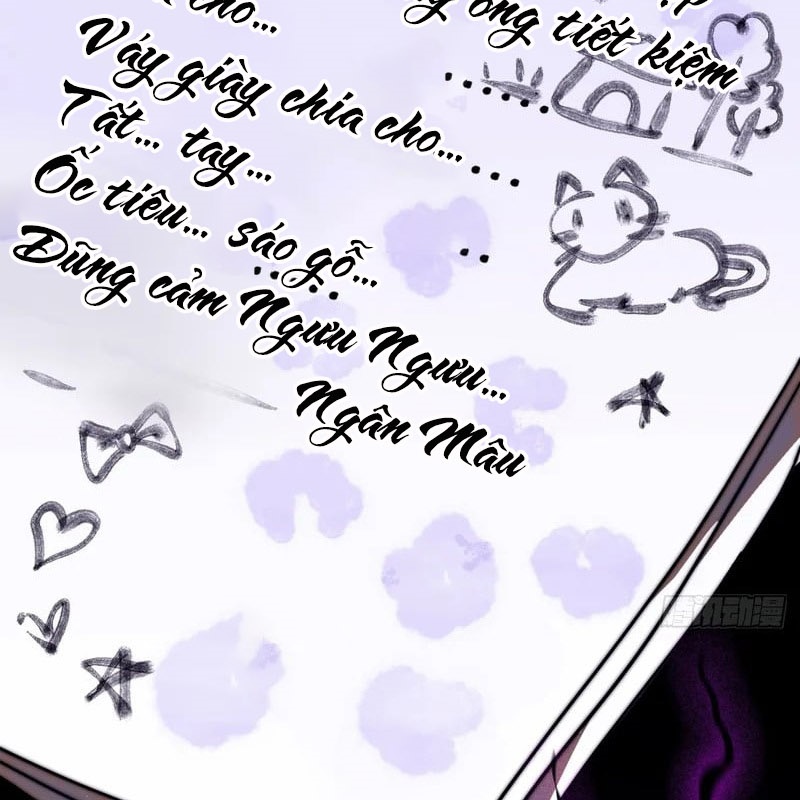 cho...
ống tiết kiệm
Váy giày chia cho...
Tất... tay...
Ốc tiêu... sáo gỗ...
Dũng cảm Ngưu Ngưu...
Ngân Mâu
腾讯动漫